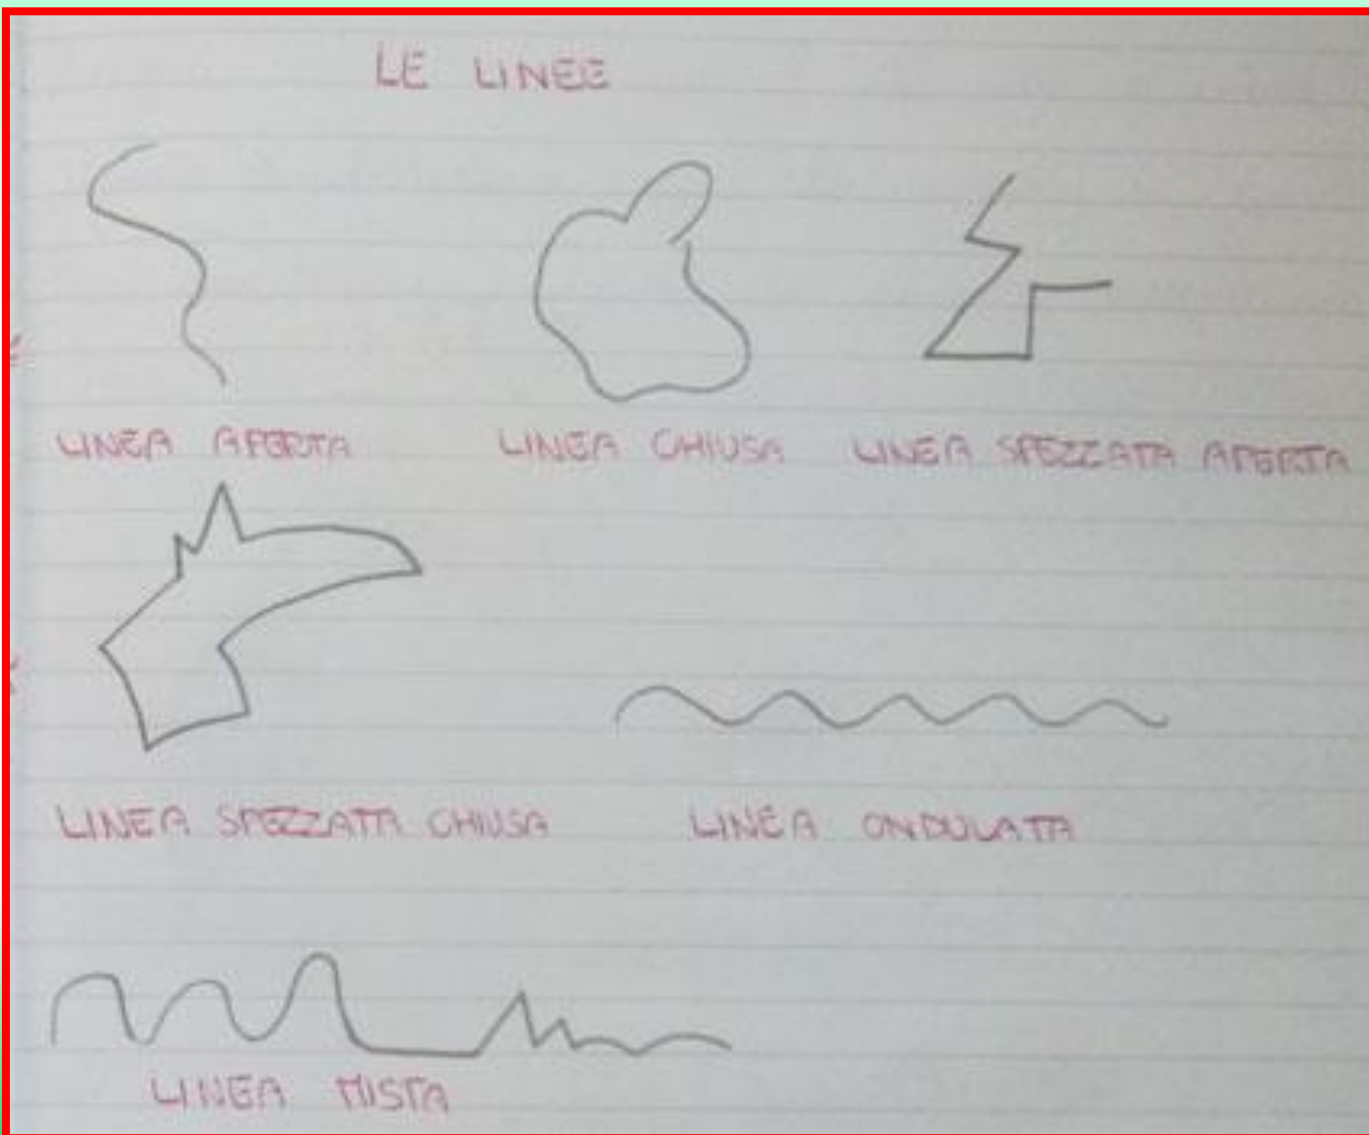 LE LINEE
LINEA APERTA
LINEA CHIUSA
LINEA SPEZZATA APERTA
LINEA SPEZZATA CHIUSA
LINEA ONDULATA
LINEA MISTA